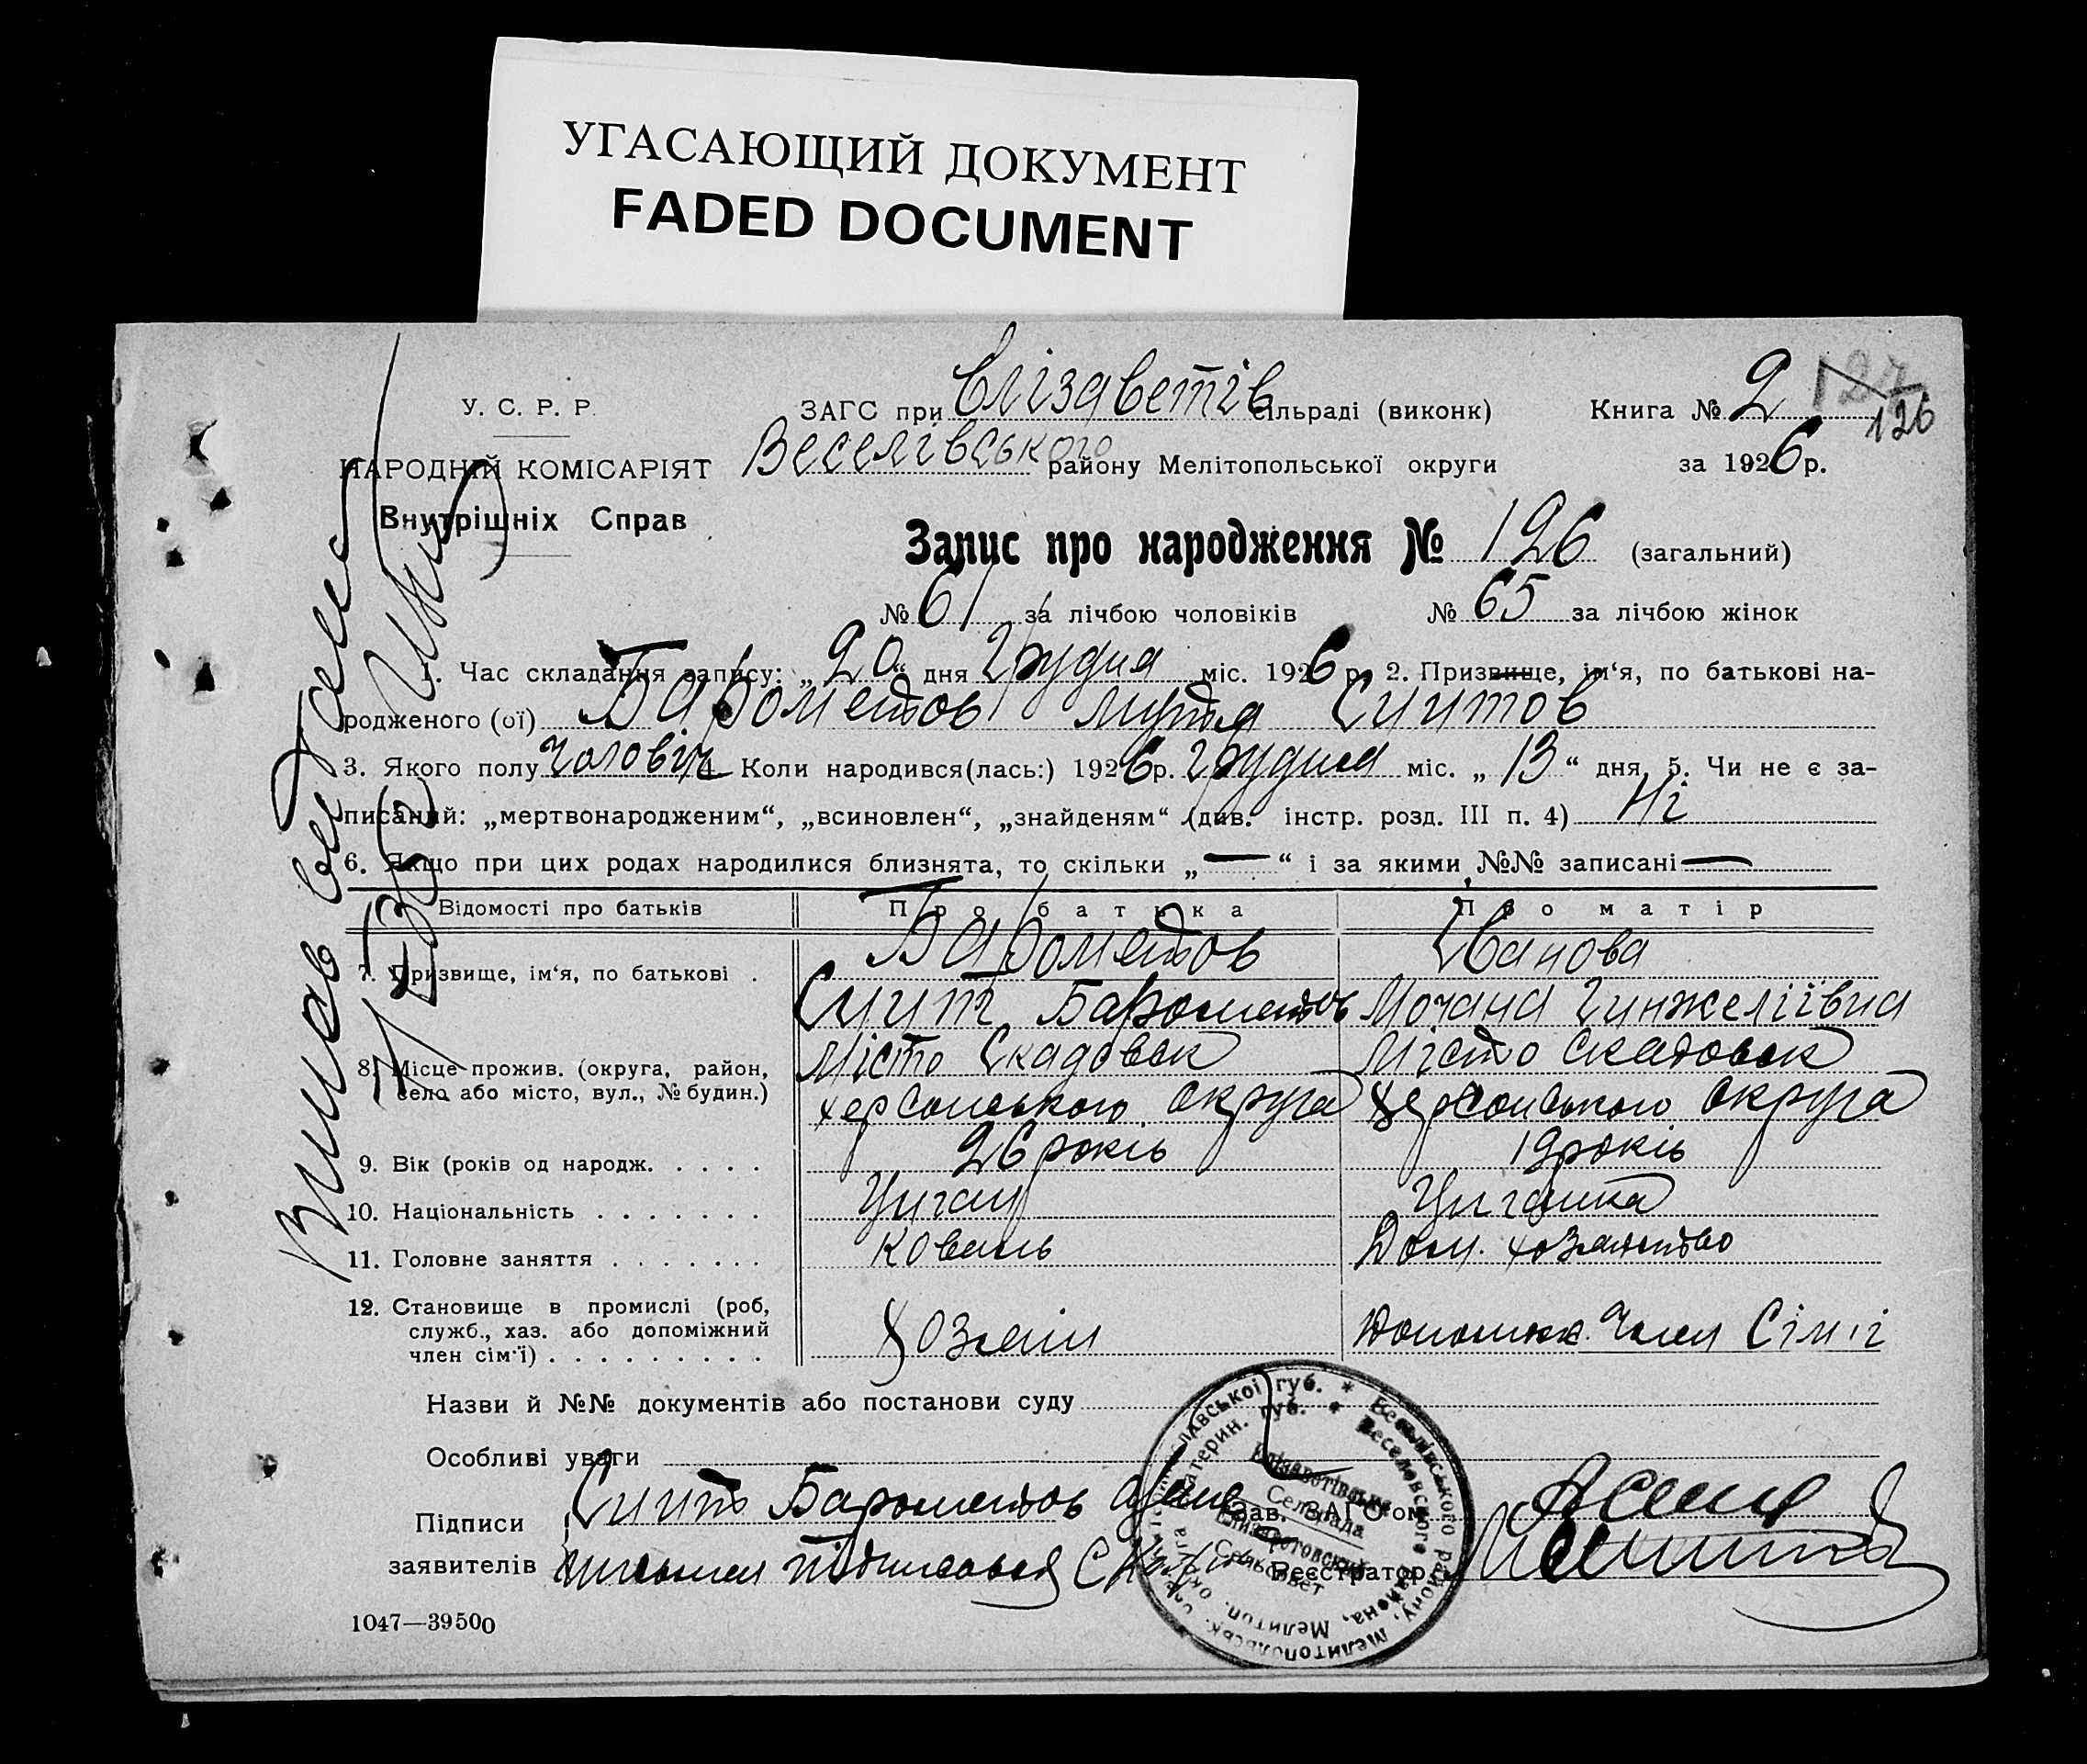 УГАСАЮЩИЙ ДОКУМЕНТ
FADED DOCUMENT
У. С. Р. Р.
НАРОДНІЙ КОМІСАРІЯТ
Внутрішніх Справ
ЗАГС при Єлізаветів сільраді (виконк)
Веселівського району Мелітопольської округи
Книга № 2
127
126
за 1926 р.
Запис про народження № 126 (загальний)
№ 61 за лічбою чоловіків № 65 за лічбою жінок
1. Час складання запису: „20“ дня Грудня міс. 1926 р. 2. Призвище, ім'я, по батькові на-
родженого (ої) Барометов Сиитов
3. Якого полу Чоловіч 4. Коли народився(лась:) 1926 р. Грудня міс. „13“ дня, 5. Чи не є за-
писаний: „мертвонародженим“, „всиновлен“, „знайденям“ (див. інстр. розд. III п. 4) Ні
6. Якщо при цих родах народилися близнята, то скільки „—“ і за якими №№ записані —
Відомості про батьків Про батька Про матір
7. Призвище, ім'я, по батькові . Барометов Іванова
Сиит Барометов Мочана
8. Місце прожив. (округа, район, село або місто, вул., № будин.)
Місто Скадовск Місто Скадовск
Херсонського округа Херсонського округа
9. Вік (років од народж. . . . . 26 років 19 років
10. Національність . . . . . . . Циган Циганка
11. Головне заняття . . . . . . . Коваль Дом. хозяйство
12. Становище в промислі (роб, служб., хаз. або допоміжний член сім'ї) . . . . . . . . .
Хозяїн Допоміж. Член Сімії
Назви й №№ документів або постанови суду
Особливі уваги
Підписи заявителів
Сиит Барометов
Зав. ЗАГС'ом
Реєстратор
Веселівського району, Мелітопольськ.
Веселовского района, Мелитоп. округа Катерин. губ.
Єлізаветівська
Сельрада
Елизаветовский
Сельсовет
1047—39500